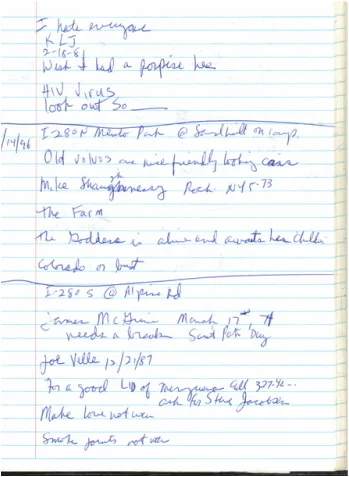 I hate everyone
KLJ
2-18-81
Wish I had a porpise here
HIV Virus
look out So
1/14/96
I-280N Menlo Park @ Sandhill on ramp.
Old volvos are nice friendly looking cars
Mike Shaughnessy Rock NY 5-73
The Farm
the Goddess is alive and awaits her
Colorado or bust
I-280 S @ Alpine Rd
James McG March 17th, 79
needs a break Saint Pats Day
Joe Ville 12/21/87
For a good LID of call 327-42
ask for Steve Jacobsen
Make love not war
Smoke joints not war